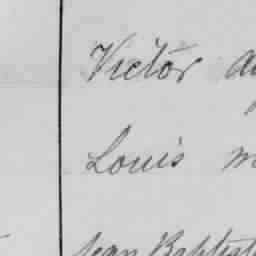 Victor
Louis
Jean Baptiste